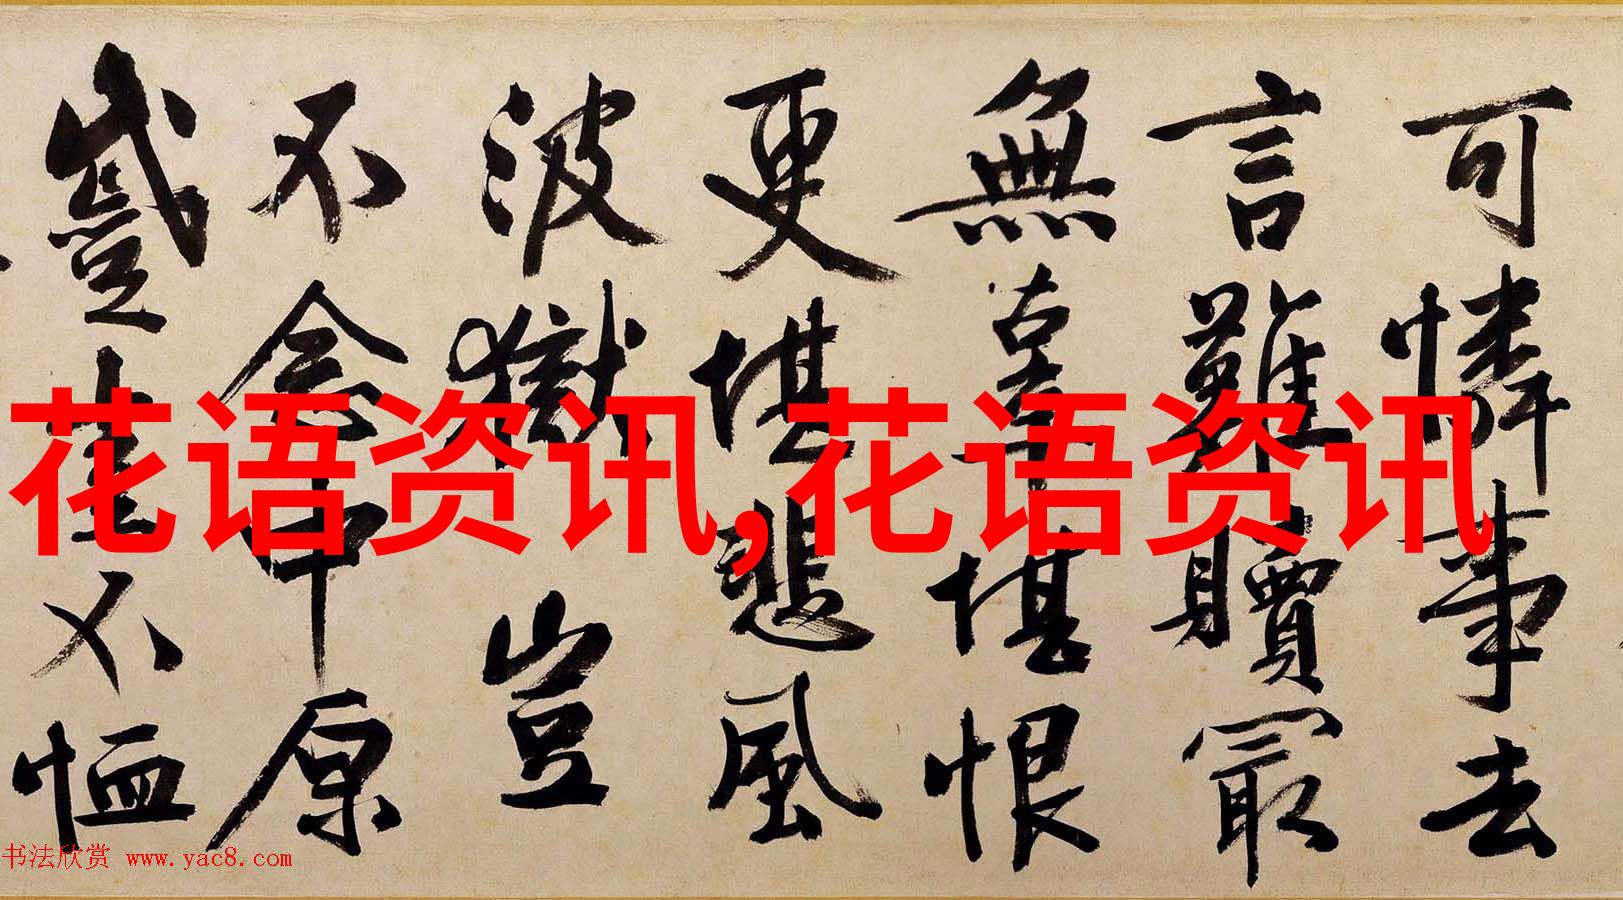 可憐事去
言難贖最
無辜堪恨
更堪悲風
波獄豈
不念中原
蹙豈不恤
花语资讯,花语资讯
书法欣赏 www.yac8.com